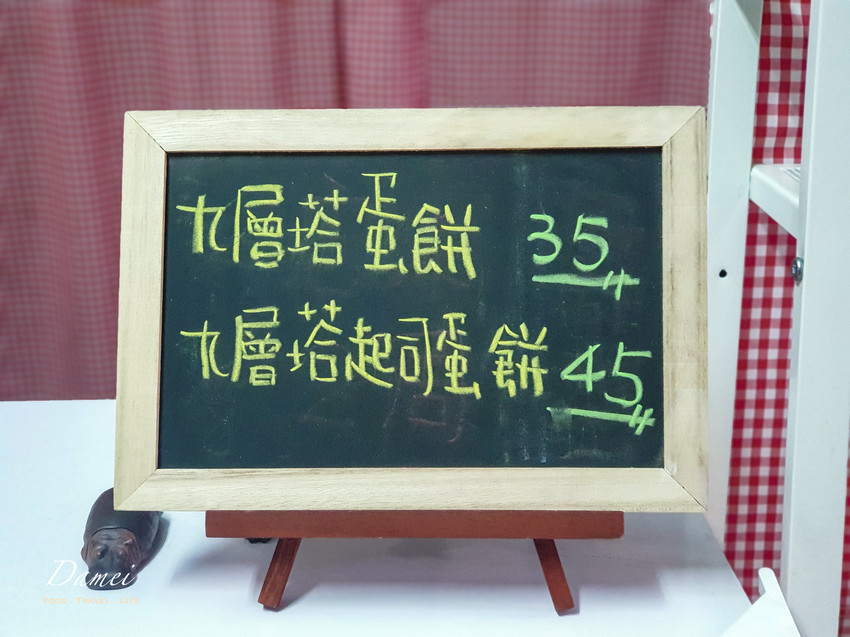 九層塔蛋餅 35
九層塔起司蛋餅 45
Damei
FOOD . TRAVEL . LIFE